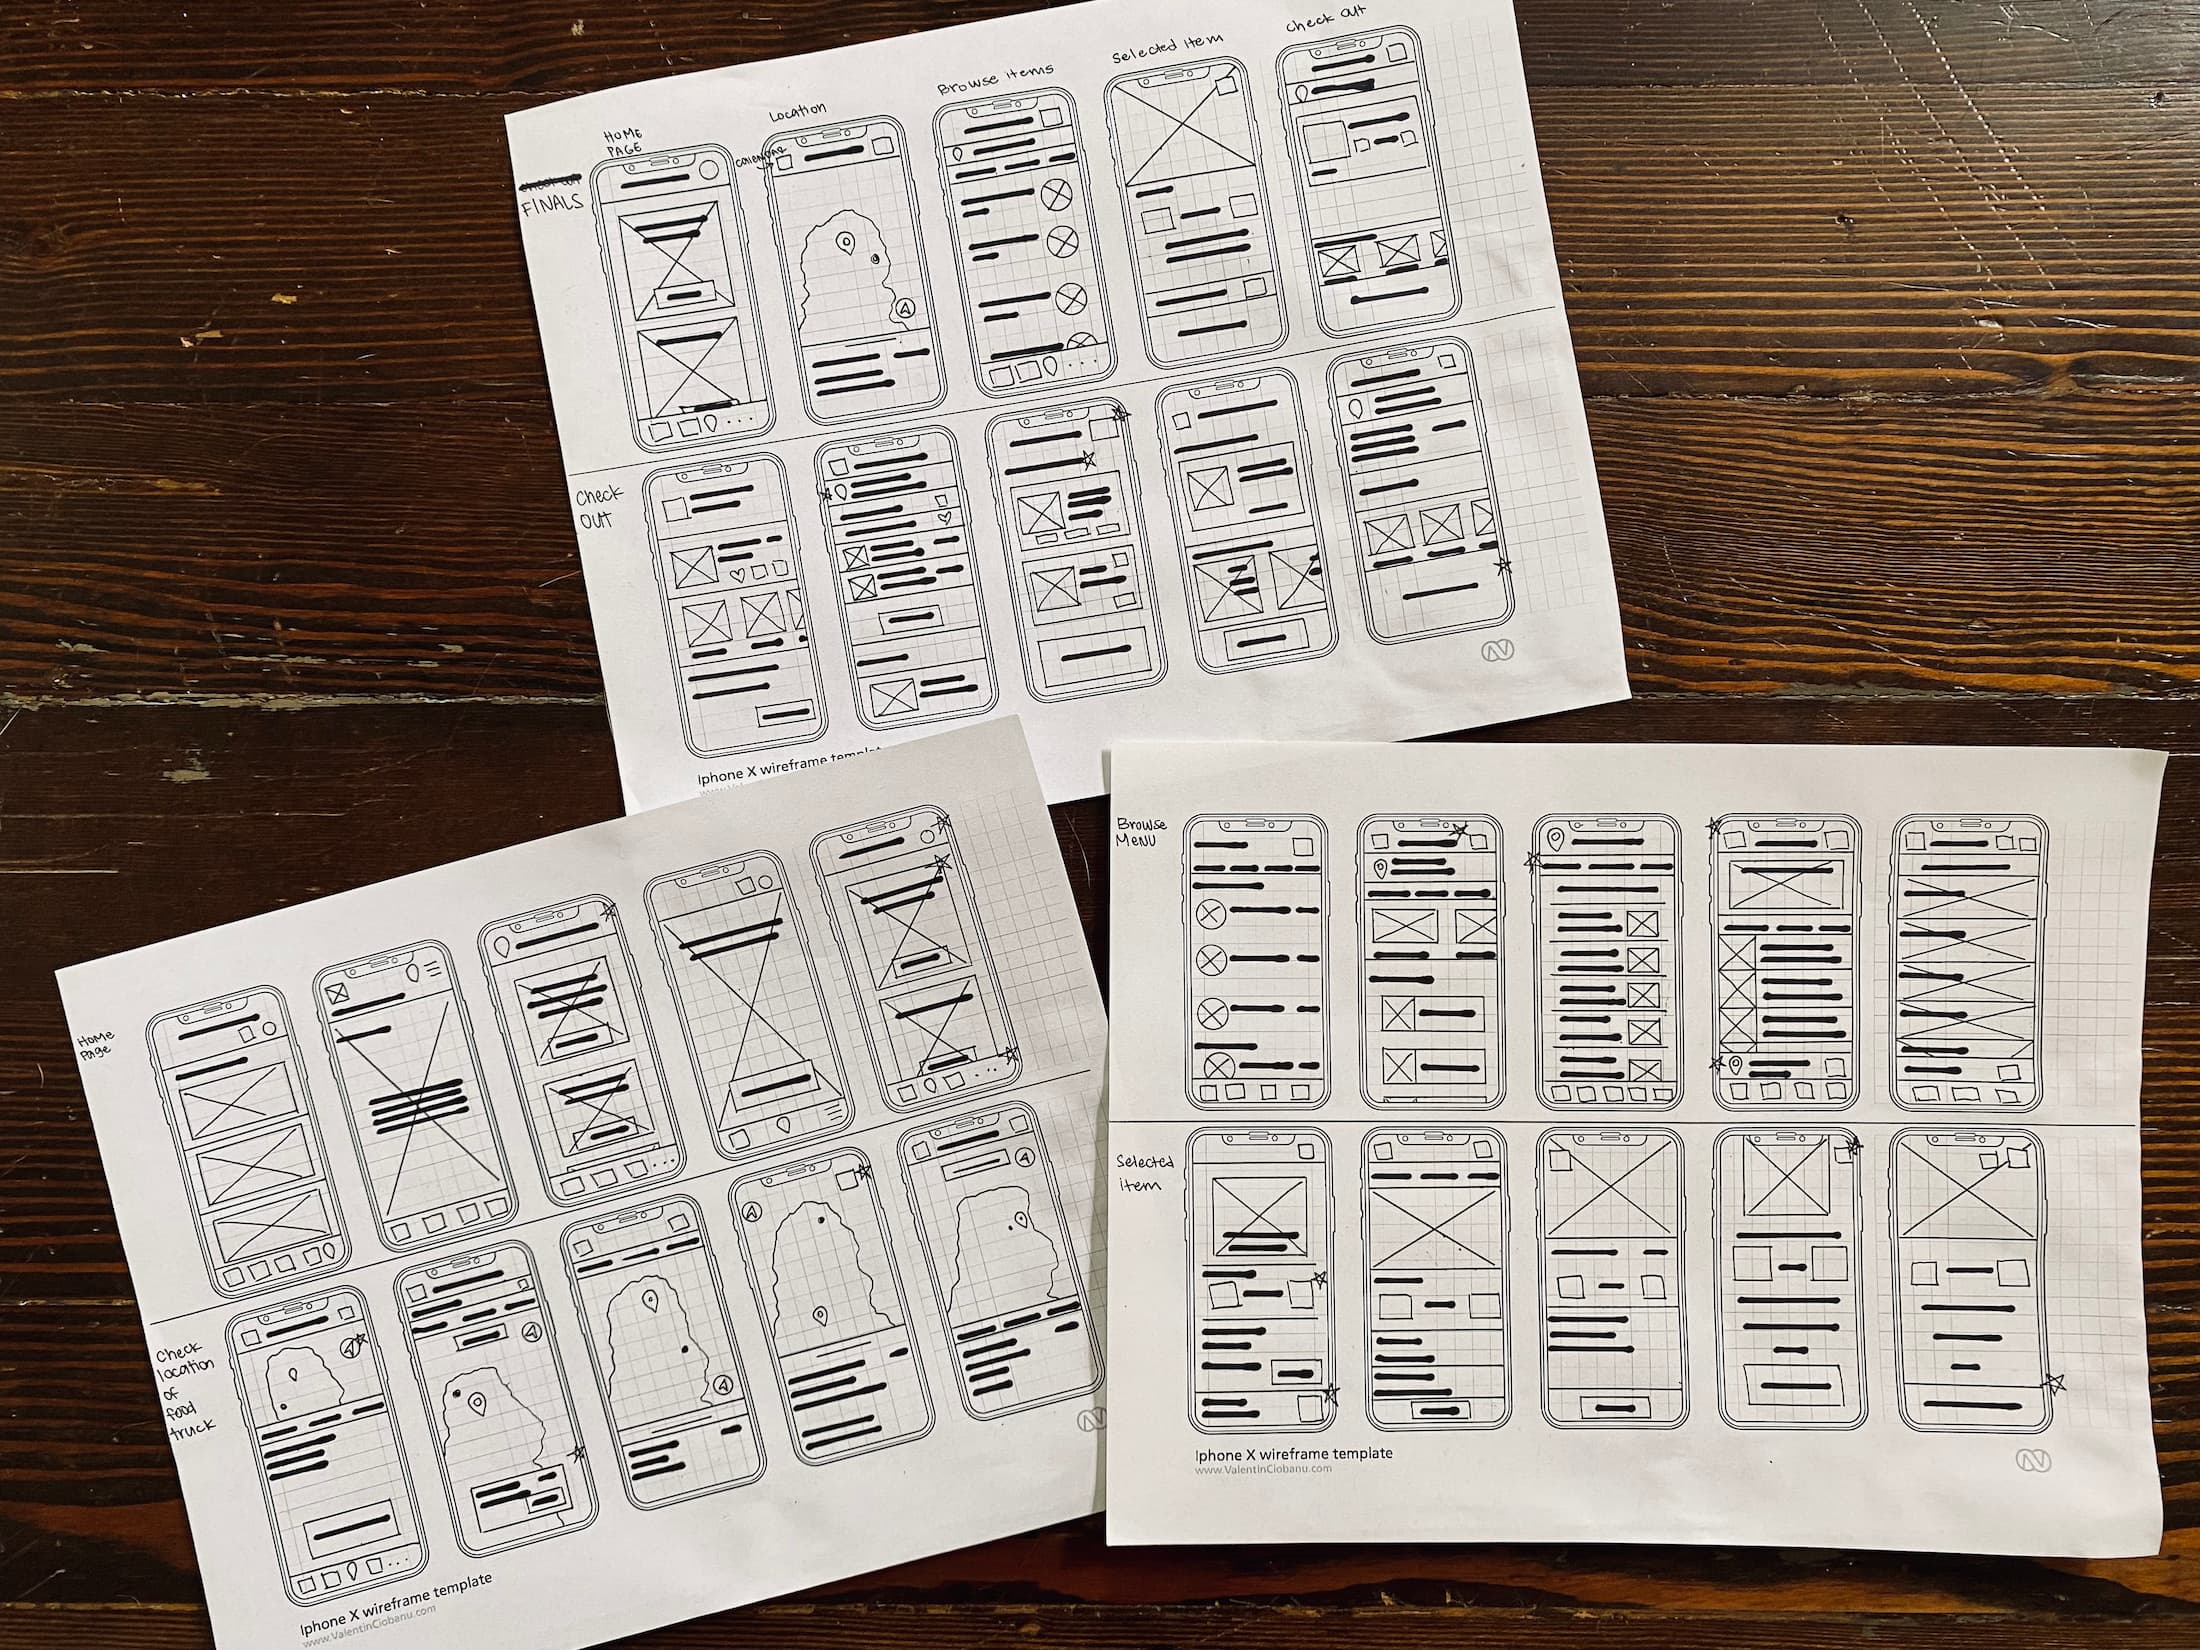 HOME
PAGE
Location
Browse items
Selected item
Check out
FINALS
Check
out
Iphone X wireframe template
Home
Page
Check
location
of
food
truck
Iphone X wireframe template
www.ValentinCiobanu.com
Browse
Menu
Selected
item
Iphone X wireframe template
www.ValentinCiobanu.com